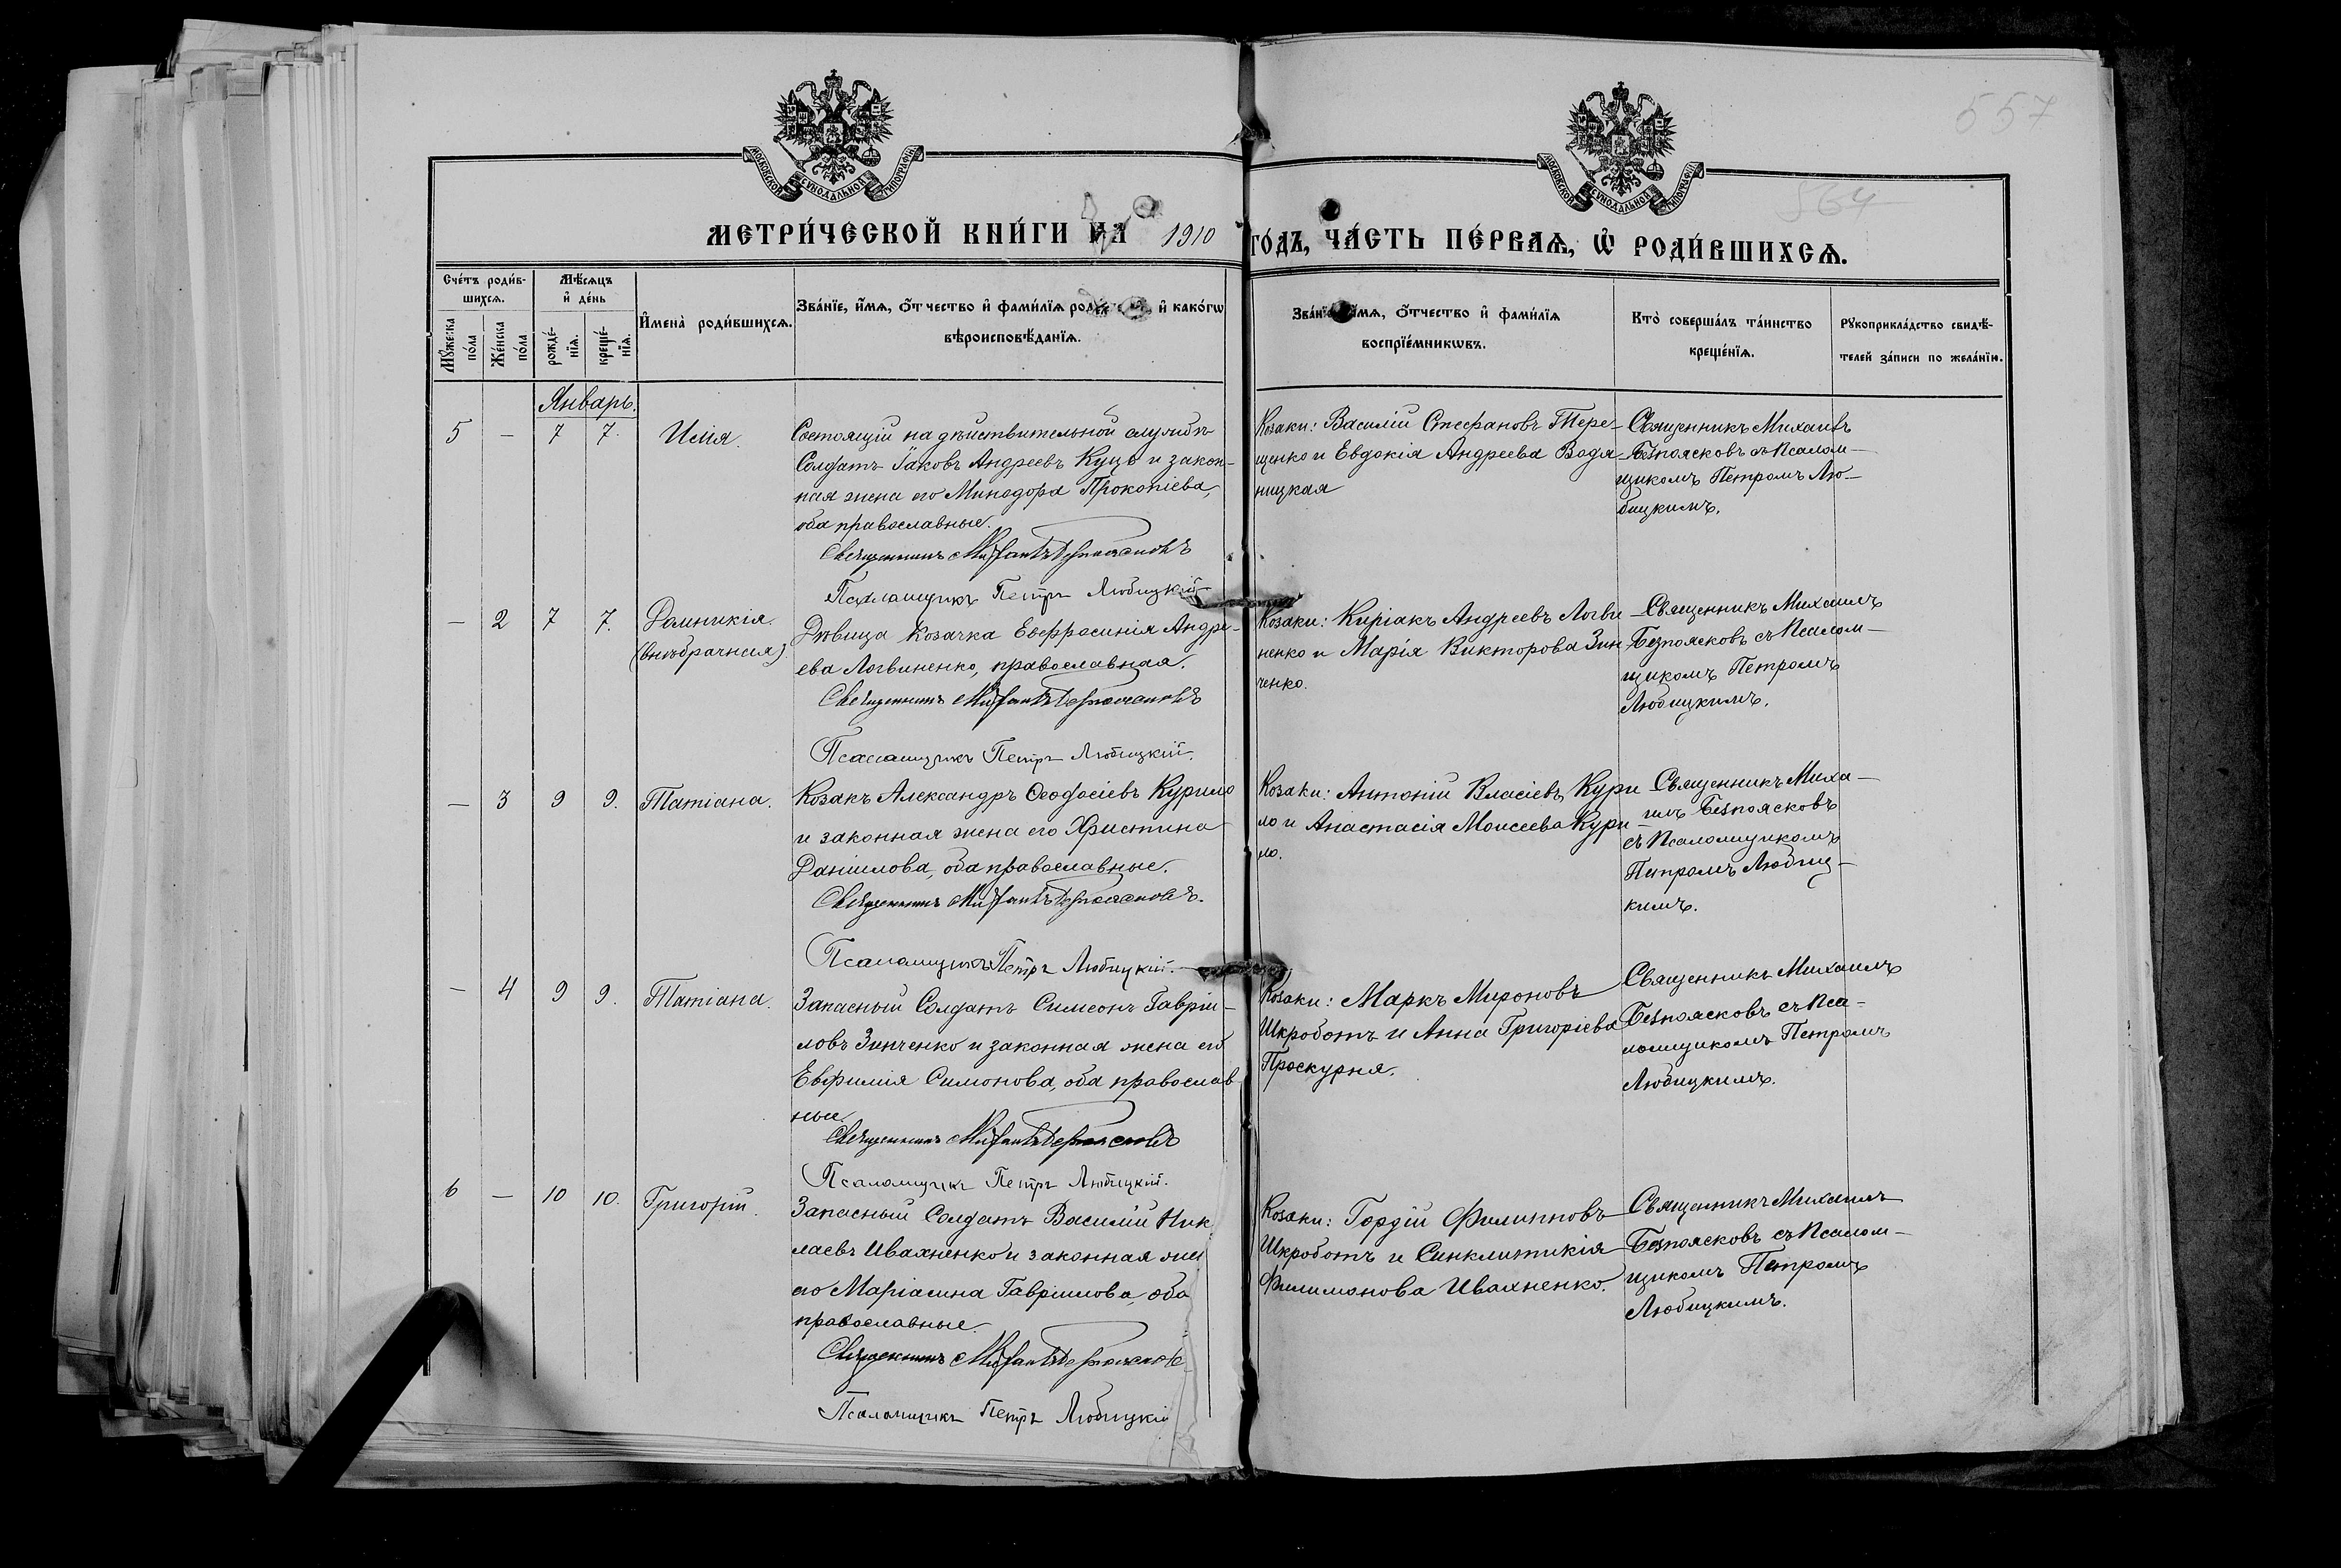 557
564
МОСКОВСКОЙ СѴНОДАЛЬНОЙ ТИПОГРАФІИ
МОСКОВСКОЙ СѴНОДАЛЬНОЙ ТИПОГРАФІИ
МЕТРИ́ЧЕСКОЙ КНИ́ГИ НА 1910 ГО́ДЪ, ЧА́СТЬ ПЕ́РВАѦ, Ѡ҆ РОДИ́ВШИХСѦ.
Сче́тъ роди́в-
шихсѧ.
Мꙋ́жеска
по́ла
Же́нска
по́ла
Мѣ́сѧцъ
и҆ де́нь
рожде́-
нїѧ.
креще́-
нїѧ.
И҆мена̀ роди́вшихсѧ.
Зва́нїе, и҆́мѧ, ѻ҆́тчество и҆ фами́лїѧ и҆ како́гѡ
вѣроисповѣ́данїѧ.
Зва́нїе, и҆́мѧ, ѻ҆́тчество и҆ фами́лїѧ
воспрїе́мникѡвъ.
Кто̀ соверша́лъ та́инство
креще́нїѧ.
Рꙋкоприкла́дство свидѣ́-
телей за́писи по жела́нїю.
Январь.
5 – 7 7. Илія.
Состоящій на дѣйствительной службѣ
Солдатъ Іаковъ Андреевъ Куцъ и закон-
ная жена его Минодора Прокопіева,
оба православные.
Священникъ Михаилъ Безпоясковъ
Псаломщикъ Петръ Любицкій
Козаки: Василій Стефановъ Тере-
щенко и Евдокія Андреева Водя-
ницкая
Священникъ Михаилъ
Безпоясковъ съ Псалом-
щикомъ Петромъ Лю-
бицкимъ.
– 2 7 7. Домникія.
(внѣбрачная)
Дѣвица Козачка Евфросинія Андре-
ева Логвиненко, православная.
Священникъ Михаилъ Безпоясковъ
Псаломщикъ Петръ Любицкій.
Козаки: Киріакъ Андреевъ Логви-
ненко и Марія Викторова Зин-
ченко.
Священникъ Михаилъ
Безпоясковъ съ Псалом-
щикомъ Петромъ
Любицкимъ.
– 3 9 9. Татіана.
Козакъ Александръ Ѳеодосіевъ Курило
и законная жена его Христина
Даніилова, оба православные.
Священникъ Михаилъ Безпоясковъ.
Псаломщикъ Петръ Любицкій.
Козаки: Антоній Власіевъ Кури
ло и Анастасія Моисеева Кури-
ло.
Священникъ Миха-
илъ Безпоясковъ
съ Псаломщикомъ
Петромъ Любиц-
кимъ.
– 4 9 9. Татіана.
Запасный Солдатъ Симеонъ Гавріи-
ловъ Зинченко и законная жена его
Евфимія Симонова, оба православ
ные
Священникъ Михаилъ Безпоясковъ
Псаломщикъ Петръ Любицкій.
Козаки: Маркъ Мироновъ
Шкроботъ и Анна Григоріева
Проскурня.
Священникъ Михаилъ
Безпоясковъ съ Пса-
ломщикомъ Петромъ
Любицкимъ.
6 – 10 10. Григорій.
Запасный Солдатъ Василій Ник
лаевъ Ивахненко и законная же
его Маріамна Гавріилова, оба
православные.
Священникъ Михаилъ Безпоясковъ
Псаломщикъ Петръ Любицкій
Козаки: Гордій Филипповъ
Шкроботъ и Синклитикія
Филимонова Ивахненко.
Священникъ Михаилъ
Безпоясковъ съ Псалом-
щикомъ Петромъ
Любицкимъ.